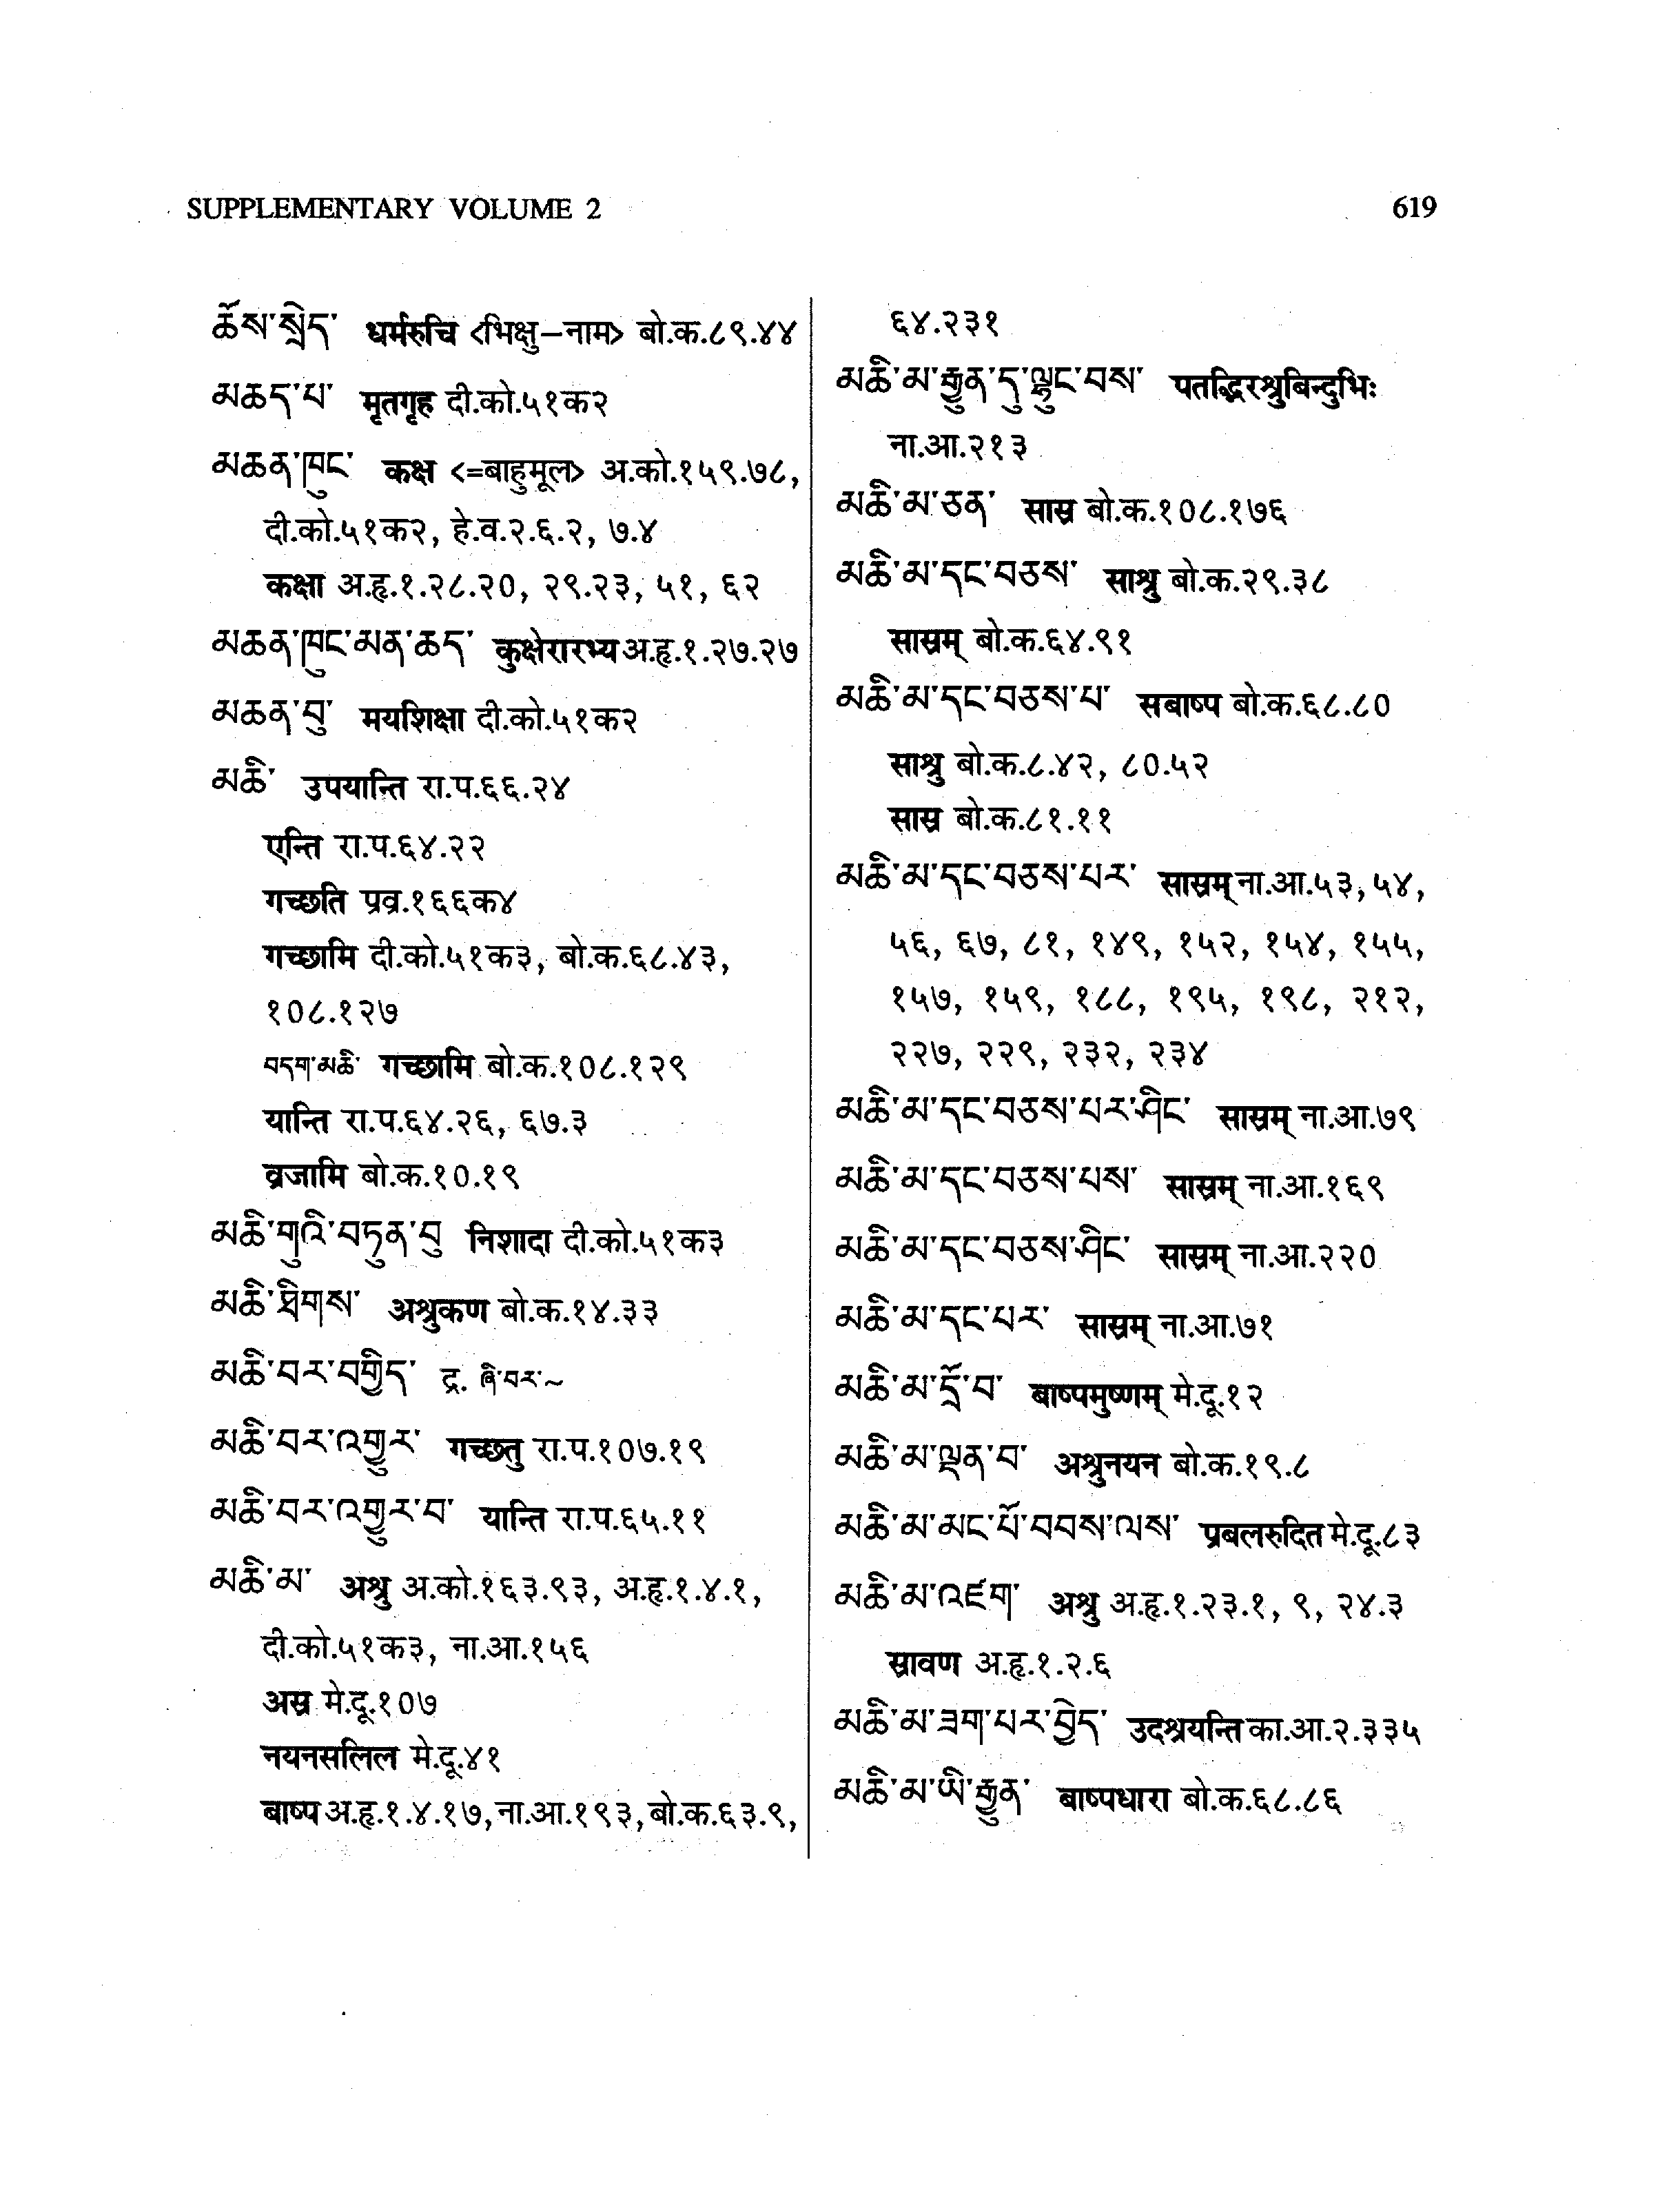 SUPPLEMENTARY VOLUME 2 619
ཆོས་སྲེད་ धर्मरुचि <भिक्षु–नाम> बो.क.८९.४४
མཆད་པ་ मृतगृह दी.को.५१क२
མཆན་ཁུང་ कक्ष <=बाहुमूल> अ.को.१५९.७८,
दी.को.५१क२, हे.व.२.६.२, ७.४
कक्षा अ.हृ.१.२८.२०, २९.२३, ५१, ६२
མཆན་ཁུང་མན་ཆད་ कुक्षेरारभ्य अ.हृ.१.२७.२७
མཆན་བུ་ मयशिक्षा दी.को.५१क२
མཆི་ उपयान्ति रा.प.६६.२४
एन्ति रा.प.६४.२२
गच्छति प्रव्र.१६६क४
गच्छामि दी.को.५१क३, बो.क.६८.४३,
१०८.१२७
བདག་མཆི་ गच्छामि बो.क.१०८.१२९
यान्ति रा.प.६४.२६, ६७.३
व्रजामि बो.क.१०.१९
མཆི་གུའི་བཏུན་བུ निशादा दी.को.५१क३
མཆི་ཐིགས་ अश्रुकण बो.क.१४.३३
མཆི་བར་བགྱིད་ द्र. ཞི་བར་~
མཆི་བར་འགྱུར་ गच्छतु रा.प.१०७.१९
མཆི་བར་འགྱུར་བ་ यान्ति रा.प.६५.११
མཆི་མ་ अश्रु अ.को.१६३.९३, अ.हृ.१.४.१,
दी.को.५१क३, ना.आ.१५६
अस्र मे.दू.१०७
नयनसलिल मे.दू.४१
बाष्प अ.हृ.१.४.१७, ना.आ.१९३, बो.क.६३.९,
६४.२३१
མཆི་མ་རྒྱུན་དུ་ལྷུང་བས་ पतद्भिरश्रुबिन्दुभिः
ना.आ.२१३
མཆི་མ་ཅན་ सास्र बो.क.१०८.१७६
མཆི་མ་དང་བཅས་ साश्रु बो.क.२९.३८
सास्रम् बो.क.६४.९१
མཆི་མ་དང་བཅས་པ་ सबाष्प बो.क.६८.८०
साश्रु बो.क.८.४२, ८०.५२
सास्र बो.क.८१.११
མཆི་མ་དང་བཅས་པར་ सास्रम् ना.आ.५३, ५४,
५६, ६७, ८१, १४९, १५२, १५४, १५५,
१५७, १५९, १८८, १९५, १९८, २१२,
२२७, २२९, २३२, २३४
མཆི་མ་དང་བཅས་པར་ཤིང་ सास्रम् ना.आ.७९
མཆི་མ་དང་བཅས་པས་ सास्रम् ना.आ.१६९
མཆི་མ་དང་བཅས་ཤིང་ सास्रम् ना.आ.२२०
མཆི་མ་དང་པར་ सास्रम् ना.आ.७१
མཆི་མ་དྲོ་བ་ बाष्पमुष्णम् मे.दू.१२
མཆི་མ་ལྡན་བ་ अश्रुनयन बो.क.१९.८
མཆི་མ་མང་པོ་བབས་ལས་ प्रबलरुदित मे.दू.८३
མཆི་མ་འཛག་ अश्रु अ.हृ.१.२३.१, ९, २४.३
स्रावण अ.हृ.१.२.६
མཆི་མ་ཟག་པར་བྱེད་ उदश्रयन्ति का.आ.२.३३५
མཆི་མ་ཡི་རྒྱུན་ बाष्पधारा बो.क.६८.८६